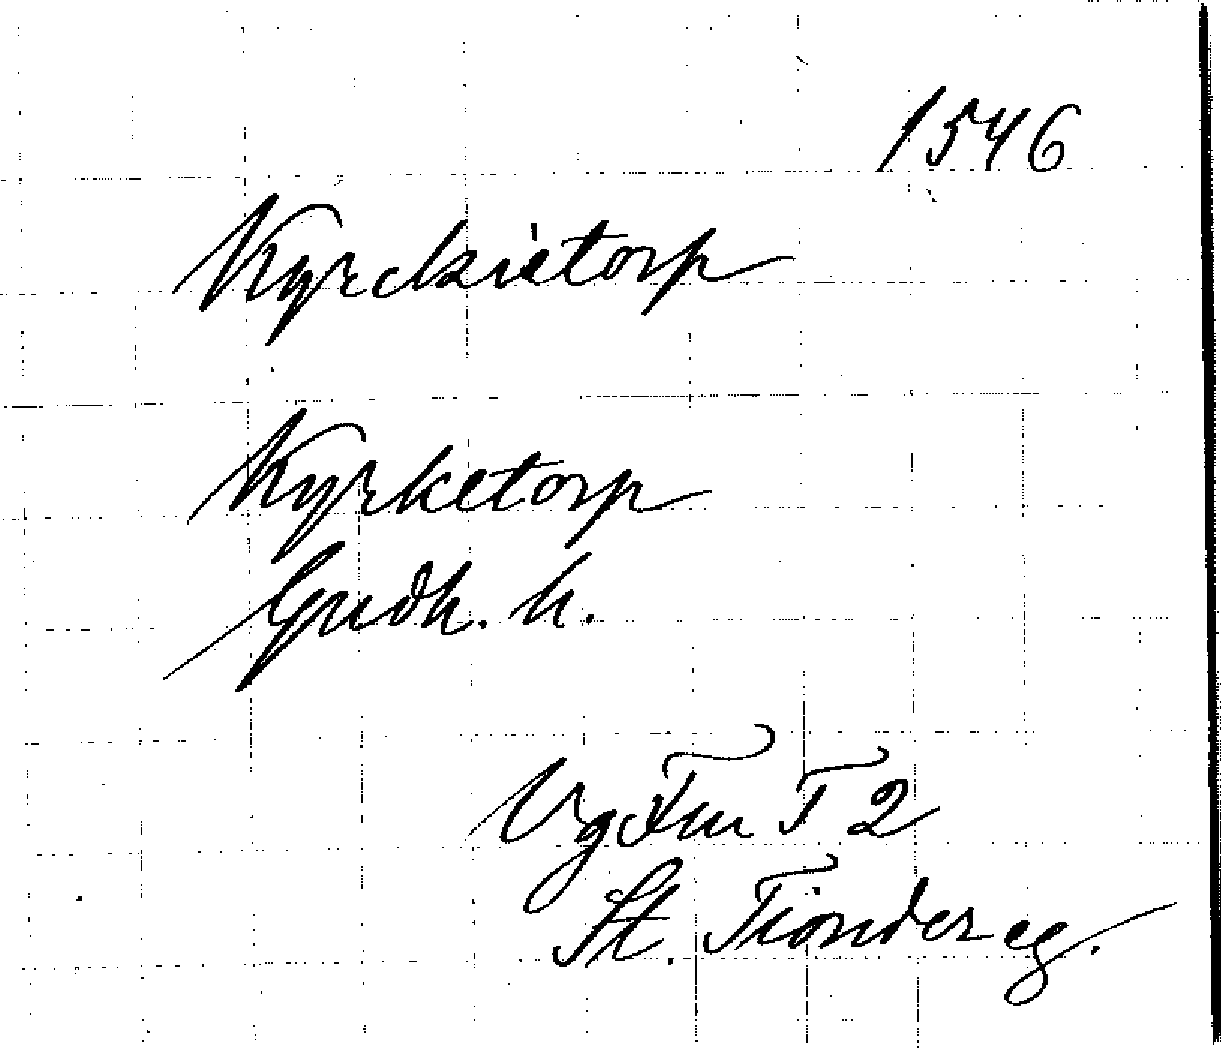 1546
Kyrckietorp
Kyrketorp
Gudh. h.
Vg Fru T 2
St. Tionder eg.